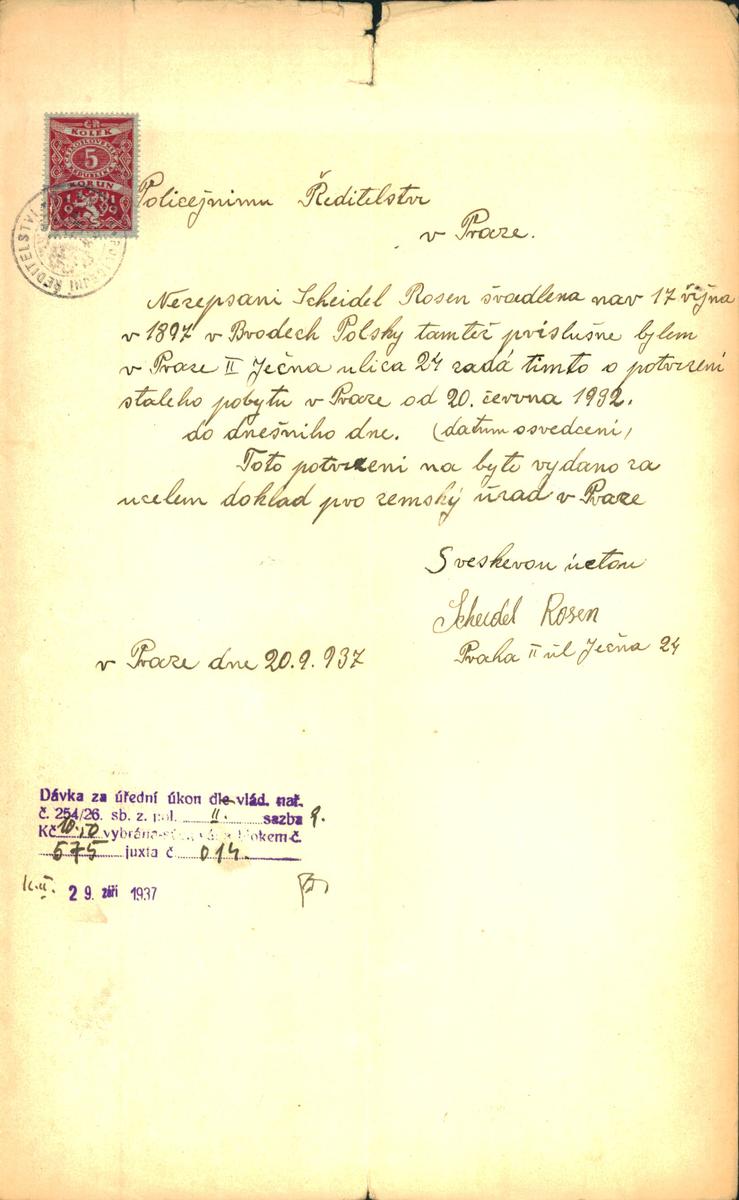 ČR
KOLEK
5
KORUN
POLICEJNÍ ŘEDITELSTVÍ
Policejnimu Ředitelstvi
v Praze.
Nezepsani Scheidel Rosen švadlena nar 17 října
v 1897 v Brodech Polsky tamtež príslušne bytem
v Praze II Ječna ulica 24 zadá timto o potvrzeni
staleho pobytu v Praze od 20. června 1932.
do dnešniho dne. (datum osvedceni)
Toto potvrzeni na byti vydano za
ucelem doklad pro zemský úrad v Praze
S veskerou úctou
Scheidel Rosen
Praha II úl Ječna 24
v Praze dne 20.9.937
Dávka za úřední úkon dle vlád. nař.
č. 254/26. sb. z. pol. II. sazba 9.
Kč 10.50 vybráno blokem č.
575 juxta č 014.
29. září 1937